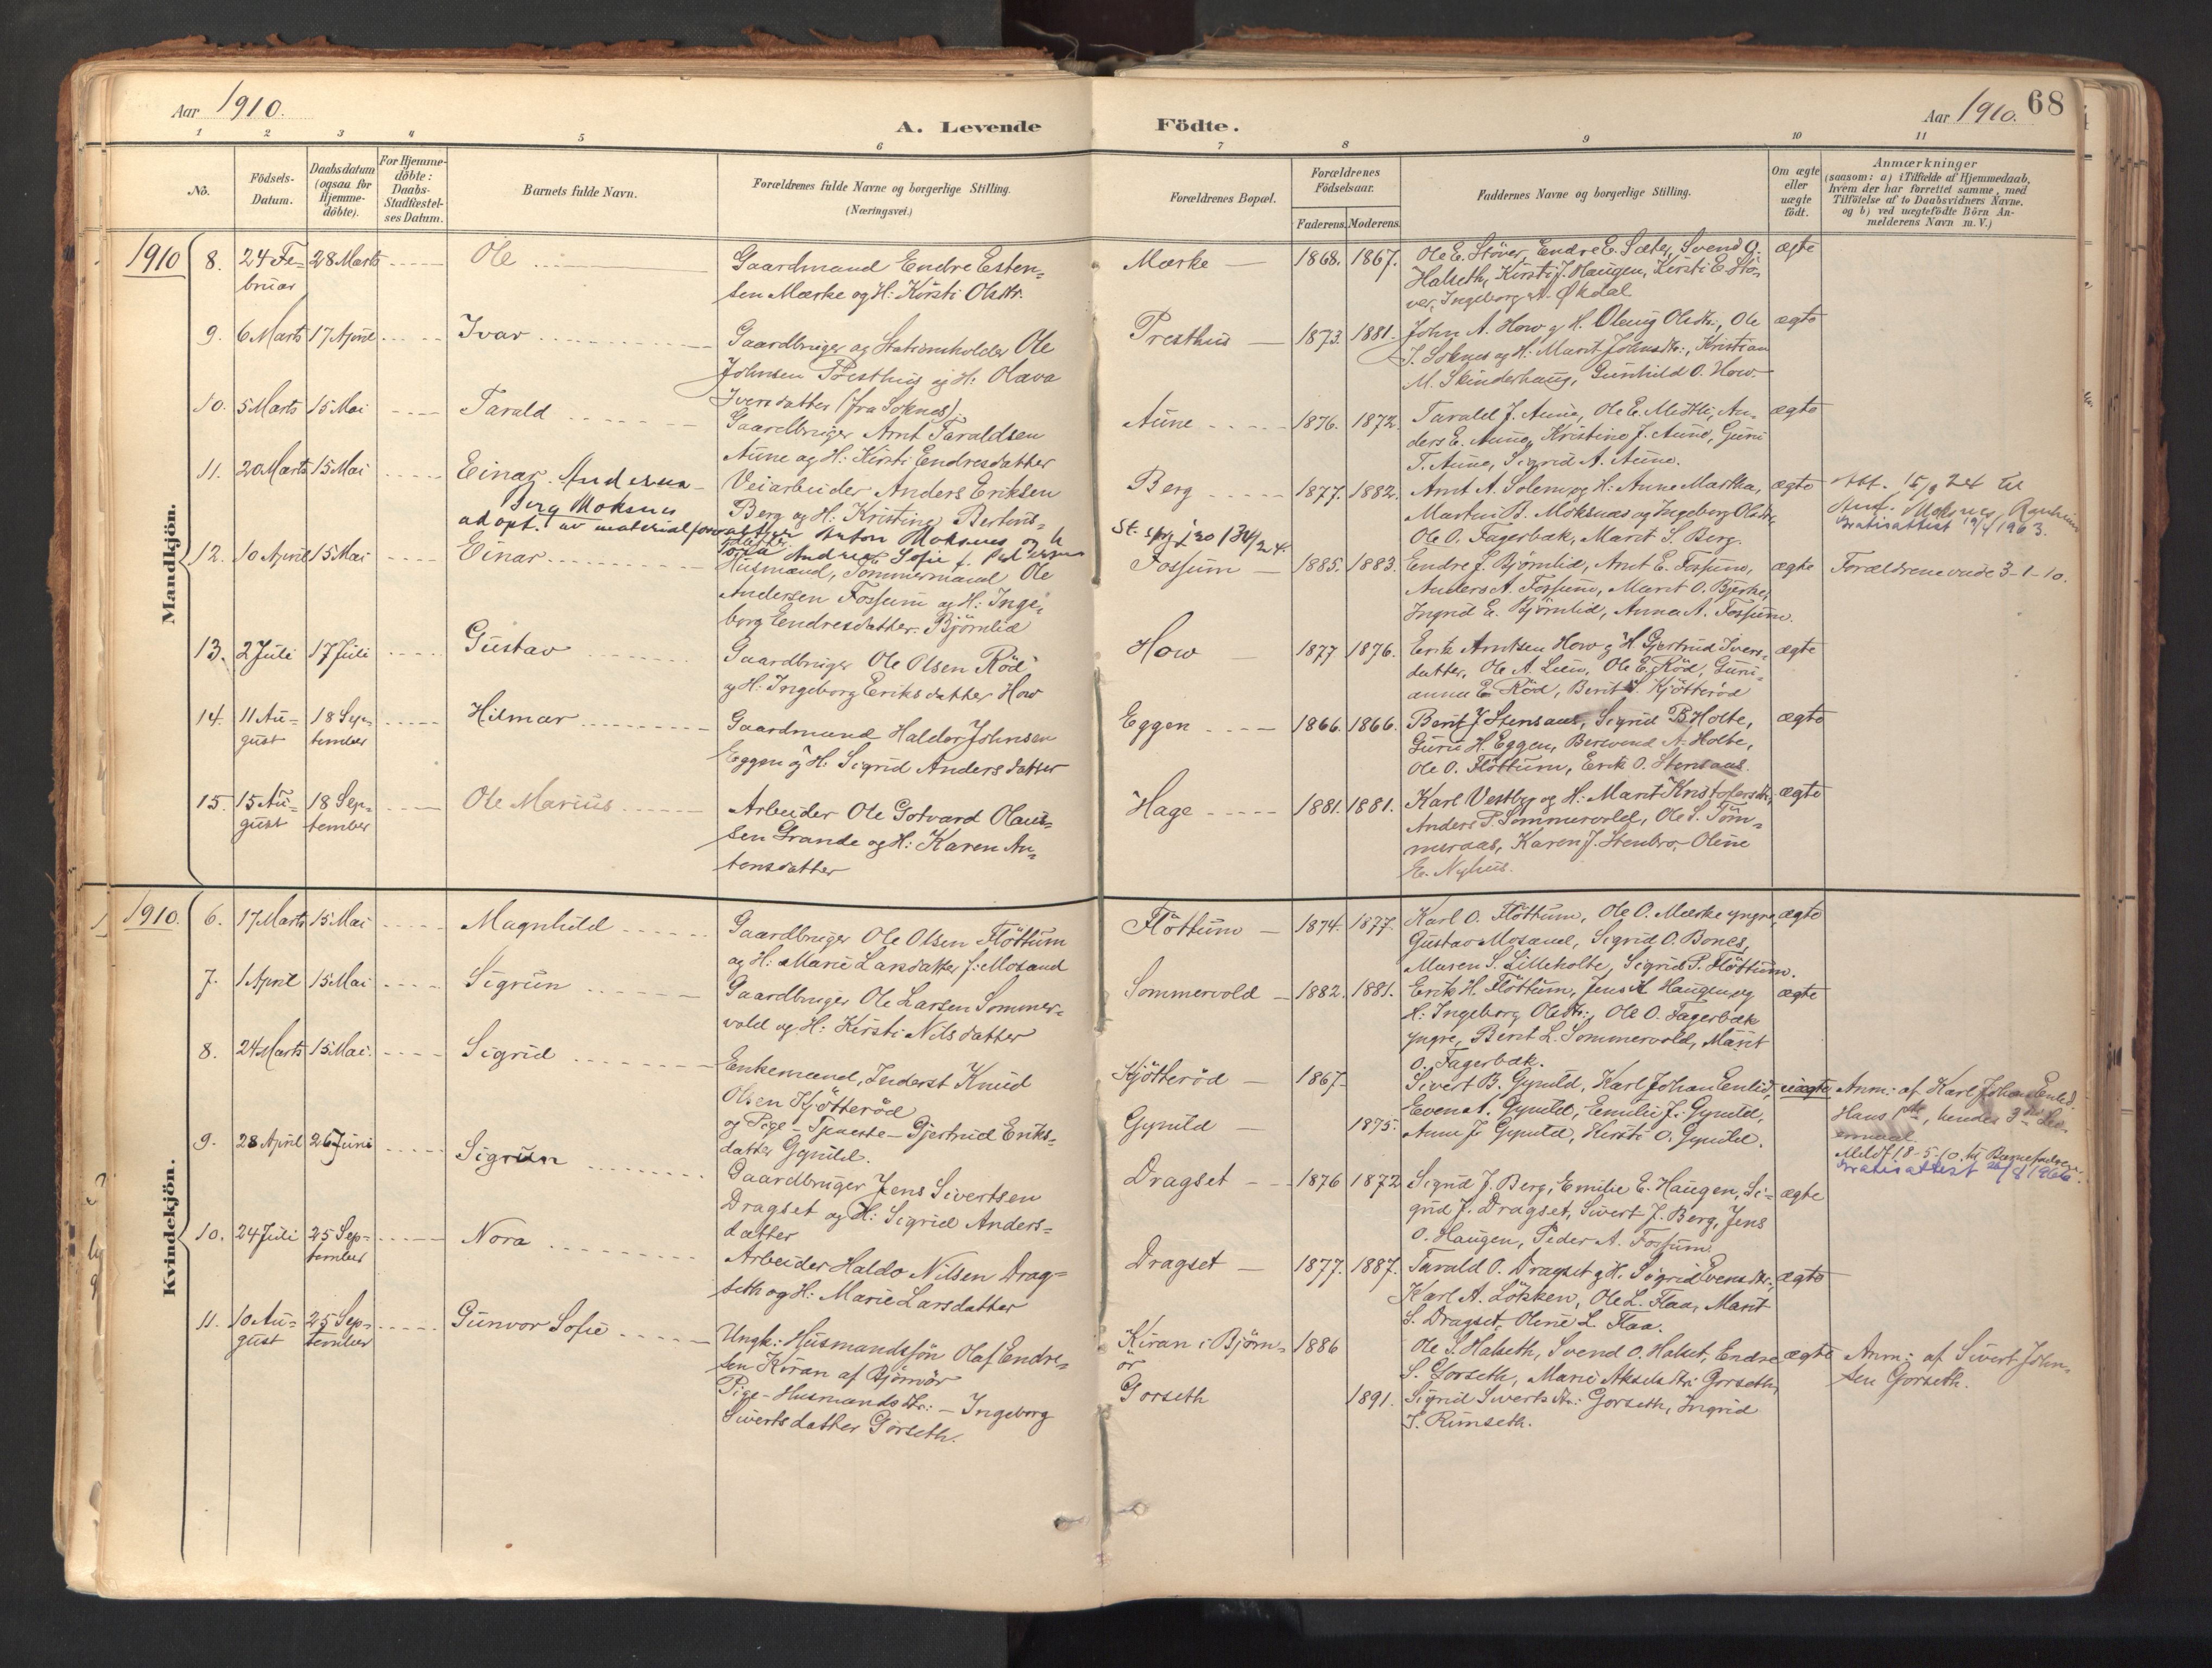 Aar 1910.
A. Levende
Födte.
Aar 1910. 68
1 2 3 4 5 6 7 8 9 10 11
No.
Födsels-
Datum.
Daabsdatum
(ogsaa for
Hjemme-
döbte).
For Hjemme-
döbte:
Daabs-
Stadfæstel-
ses Datum.
Barnets fulde Navn.
Forældrenes fulde Navne og borgerlige Stilling.
(Næringsvei.)
Forældrenes Bopæl.
Forældrenes
Födselsaar.
Faderens. Moderens.
Faddernes Navne og borgerlige Stilling.
Om ægte
eller
uægte
födt.
Anmærkninger
(saasom: a) i Tilfælde af Hjemmedaab,
hvem der har forrettet samme, med
Tilföielse af to Daabsvidners Navne.
og b) ved uægtefödte Börn An-
melderens Navn m. V.)
Mandkjön.
1910 8. 24 Fe-
bruar
28 Marts
Ole
Gaardmand Endre Esten-
sen Mærke og H: Kirsti Olsdtr.
Mærke
1868. 1867.
Ole E. Stöver, Endre E. Sæter, Svend O.
Halseth, Kirsti J. Haugen, Kirsti E. Stö-
ver, Ingeborg A. Økdal
ægte
9. 6 Marts 17 April
Ivar
Gaardbruger og Stationsholder Ole
Johnsen Presthus og H: Olava
Iversdatter (fra Soknes).
Presthus
1873. 1881.
John A. How og H. Oleug Olsdtr., Ole
J. Soknes og H: Marit Johnsdtr:, Kristian
M. Skinderhaug, Gunhild O. How.
ægte
10. 5 Marts 15 Mai
Tarald
Gaardbruger Arnt Taraldsen
Aune og H: Kirsti Endresdatter
Aune
1876. 1872.
Tarald J. Aune, Ole E. Midtli, An-
ders E. Aune, Kristine J. Aune, Guri
T. Aune, Sigrid A. Aune.
ægte
11. 20 Marts 15 Mai
Einar. Andreas
Berg Moksnes
adopt. av materialforvalter Anton Moksnes og h
Andrea Sofie f. Pedersen
Veiarbeider Anders Eriksen
Berg og H: Kristine Bertens-
datter
Berg
St. spj. j 20 134/24.
1877. 1882.
Arnt A. Solem og H: Anne Martha,
Martin B. Moksnæs og Ingeborg Olsdtr,
Ole O. Fagerbæk, Marit S. Berg.
ægte
Att. 15/9 24 til
Ant. Moksnes, Ranheim
Gratisattest 19/4 1963.
12. 10 April 15 Mai
Einar
Husmand, Tömmermand Ole
Andersen Fossum og H: Inge-
borg Endresdatter Björnlid
Fossum
1885. 1883.
Endre J. Björnlid, Arnt E. Fossum,
Anders A. Fossum, Marit O. Bjerke,
Ingrid E. Björnlid, Anna A. Fossum.
ægte
Forældrene viede 3-1-10.
13. 2 Juli 17 Juli
Gustav
Gaardbruger Ole Olsen Röd
og H: Ingeborg Eriksdatter How
How
1877 1876.
Erik Arntsen How og H. Gjertrud Ivers-
datter, Ole A. Lien, Ole E. Röd, Guri-
anna E. Röd, Berit S. Kjötteröd
ægte
14. 11 Au-
gust
18 Sep-
tember
Hilmar
Gaardmand Haldor Johnsen
Eggen og H. Sigrid Andersdatter
Eggen
1866. 1866.
Berit J. Stensaas, Sigrid B. Holte,
Guru H. Eggen, Bersvend A. Holte,
Ole O. Flöttum, Erik O. Stensaas.
ægte
15. 15 Au-
gust
18 Sep-
tember
Ole Marius
Arbeider Ole Gotvard Olaus-
sen Grande og H: Karen An-
tonsdatter
Hage
1881. 1881.
Karl Vestby og H: Marit Kristofersdtr,
Anders P. Sommervold, Ole S. Töm-
meraas, Karen J. Stenbro, Oline
E. Nyhus.
ægte
Kvindekjön.
1910. 6. 17 Marts 15 Mai
Magnhild
Gaardbruger Ole Olsen Flöttum
og H: Marie Larsdatter f: Mosand
Flöttum
1874. 1877.
Karl O. Flöttum, Ole O. Mærke yngre,
Gustav Mosand, Sigrid O. Bones,
Maren S. Lilleholte, Sigrid P. Flöttum.
ægte
7. 1 April 15 Mai
Sigrun
Gaardbruger Ole Larsen Sommer-
vold og H: Kirsti Nilsdatter
Sommervold
1882. 1881.
Erik H. Flöttum, Jens A Haugen og
H: Ingeborg Olsdtr:, Ole O. Fagerbæk
yngre, Berit L. Sommervold, Marit
O. Fagerbæk.
ægte
8. 24 Marts 15 Mai.
Sigrid
Enkemand, Inderst Knud
Olsen Kjötteröd
og Pige - Gjertrud Eriks-
datter Gynild.
Kjötteröd
Gynild
1867.
1875.
Sivert B. Gynild, Karl Johan Enlid,
Even A. Gynild, Emilie J. Gynild,
Anne J. Gynild, Kirsti O. Gynild.
uægte
Anm: af Karl Johan Enlid.
Hans , hendes 3die Lei-
ermaal.
Meldt 18-5-10 til
Gratisattest 26/8 1966.
9. 28 April 26 Juni
Sigrun
Gaardbruger Jens Sivertsen
Dragset og H: Sigrid Anders-
datter
Dragset
1876 1872
Sigrid J. Berg, Emilie E. Haugen, Si-
grid J. Dragset, Sivert J. Berg, Jens
O. Haugen, Peder A. Fossum.
ægte
10. 24 Juli 25 Sep-
tember
Nora
Arbeider Haldo Nilsen Drag-
seth og H: Marie Larsdatter
Dragset
1877. 1887.
Tarald O. Dragset og H. Sigrid Evensdtr:,
Karl A. Lökken, Ole L. Flaa, Marit
S. Dragset, Oline L. Flaa.
ægte
11. 10 Au-
gust
25 Sep-
tember
Gunvor Sofie
Ungk: Husmandssön Olaf Endre-
sen Kiran af Björnör
Pige - Husmandsdtr: - Ingeborg
Sivertsdatter Gorseth.
Kiran i Björn-
ör
Gorseth
1886
1891.
Ole S. Halseth, Svend O. Halset, Endre
S. Gorseth, Marie Akselsdtr: Gorseth,
Sigrid Sivertsdtr: Gorseth, Ingrid
J. Rimseth.
ægte
Anm: af Sivert John-
sen Gorseth.